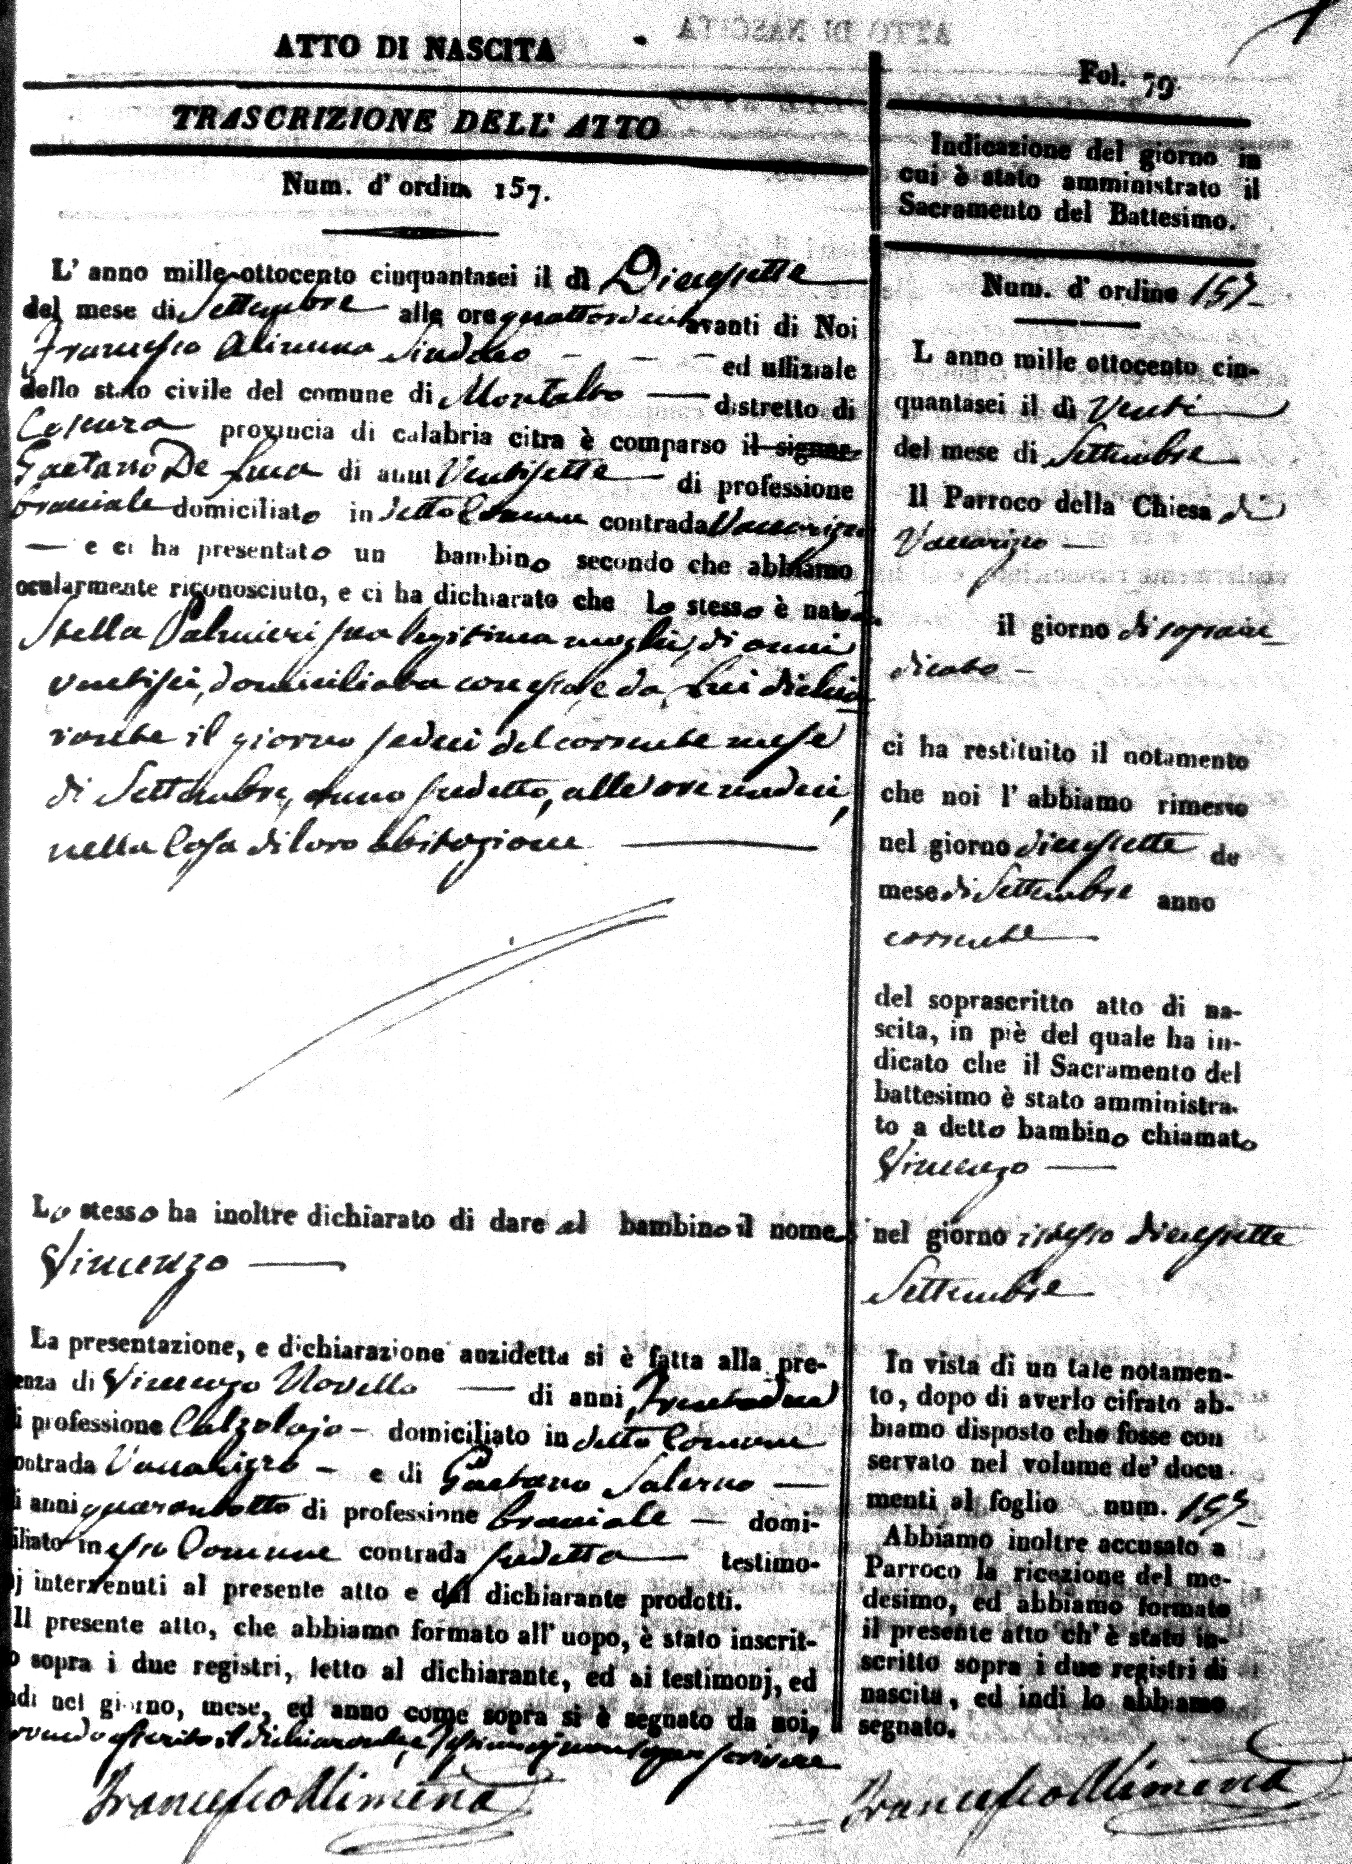 ATTO DI NASCITA
TRASCRIZIONE DELL' ATTO
Num. d' ordin 157.
L' anno mille-ottocento cinquantasei il dì Diecessette
del mese di Settembre alle ore quattordici avanti di Noi
Francesco Alimena Sindaco ed uffiziale
dello stato civile del comune di Montalto distretto di
Cosenza provincia di calabria citra è comparso il signor
Gaetano De Luca di anni Ventisette di professione
braciale domiciliato in detto Comune contrada Vaccarizzo
e ci ha presentato un bambino secondo che abbiamo
ocularmente riconosciuto, e ci ha dichiarato che lo stesso è nato da
Stella Palmieri sua legittima moglie, di anni
ventisei, domiciliata con esso e da Lui dichia
rante il giorno sedeci del corrente mese
di Settembre, anno sudetto, alle ore undeci,
nella Casa di loro abitazione
Lo stesso ha inoltre dichiarato di dare al bambino il nome di
Vincenzo
La presentazione, e dichiarazione anzidetta si è fatta alla pre-
enza di Vincenzo Novello di anni trentadue
i professione Calzolajo domiciliato in detto Comune
ontrada Vaccarizzo e di Gaetano Salerno
i anni quarantotto di professione braciale domi-
iliato in esso Comune contrada sudetta testimo-
j intervenuti al presente atto e dal dichiarante prodotti.
Il presente atto, che abbiamo formato all' uopo, è stato inscrit-
o sopra i due registri, letto al dichiarante, ed ai testimonj, ed
ndi nel giorno, mese, ed anno come sopra si è segnato da noi,
avendo asserito, il dichiarante, Testimonj non saper scrivere
Francesco Alimena
Fol. 79
Indicazione del giorno in
cui è stato amministrato il
Sacramento del Battesimo.
Num. d' ordine 157
L anno mille ottocento cin-
quantasei il dì Venti
del mese di Settembre
Il Parroco della Chiesa di
Vaccarizzo
il giorno di sopra in
dicato
ci ha restituito il notamento
che noi l' abbiamo rimesso
nel giorno diecessette de
mese di Settembre anno
corrente
del soprascritto atto di na-
scita, in piè del quale ha in-
dicato che il Sacramento del
battesimo è stato amministra-
to a detto bambino chiamato
Vincenzo
nel giorno istesso diecessette
Settembre
In vista di un tale notamen-
to, dopo di averlo cifrato ab-
biamo disposto che fosse con
servato nel volume de' docu-
menti al foglio num. 157
Abbiamo inoltre accusato a
Parroco la ricezione del me-
desimo, ed abbiamo formato
il presente atto ch' è stato in-
scritto sopra i due registri di
nascita, ed indi lo abbiamo
segnato.
Francesco Alimena